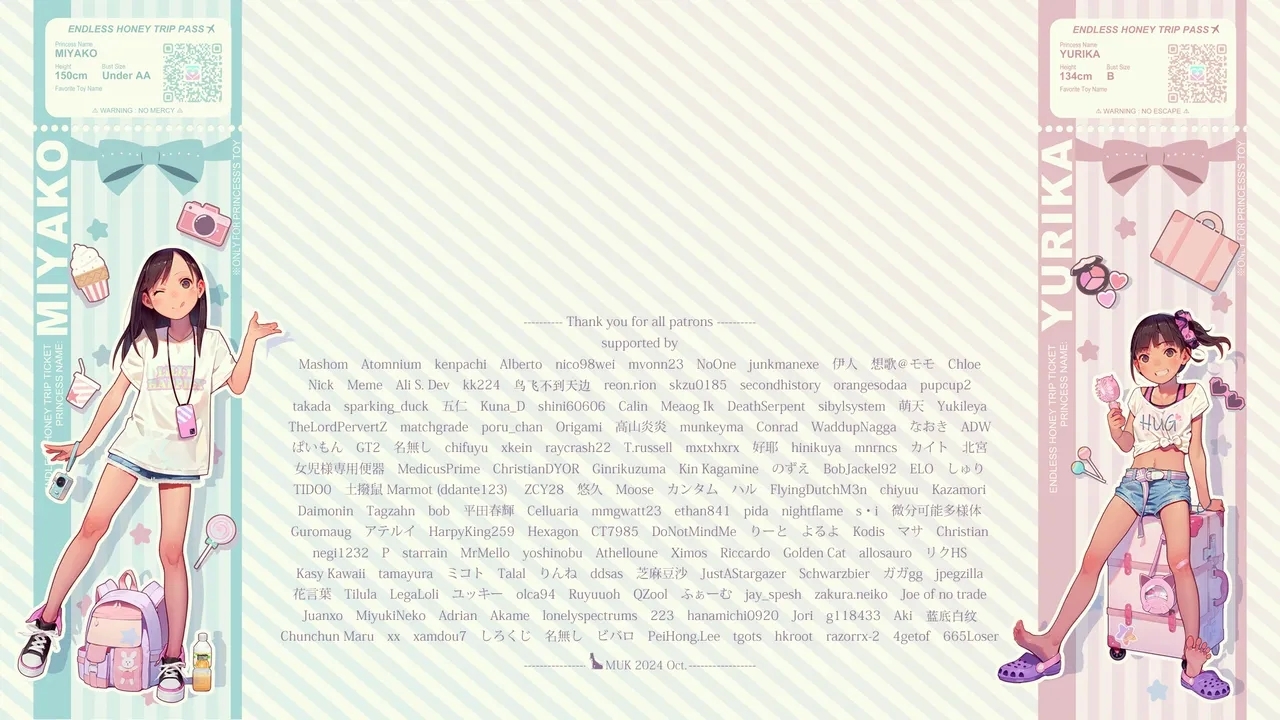 ENDLESS HONEY TRIP PASS
Princess Name
MIYAKO
Height Bust Size
150cm Under AA
Favorite Toy Name
⚠ WARNING : NO MERCY ⚠
MIYAKO
※ONLY FOR PRINCESS'S TOY
ENDLESS HONEY TRIP TICKET
PRINCESS NAME:
ENDLESS HONEY TRIP PASS
Princess Name
YURIKA
Height Bust Size
134cm B
Favorite Toy Name
⚠ WARNING : NO ESCAPE ⚠
YURIKA
※ONLY FOR PRINCESS'S TOY
ENDLESS HONEY TRIP TICKET
PRINCESS NAME:
HUG
---------- Thank you for all patrons ----------
supported by
Mashom Atomnium kenpachi Alberto nico98wei mvonn23 NoOne junkmanexe 伊人 想歌@モモ Chloe
Nick Yeme Ali S. Dev kk224 鸟飞不到天边 reon.rion skzu0185 Secondhenry orangesodaa pupcup2
takada sparking_duck 五仁 Kuna_D shini60606 Calin Meaog Ik DeathSerpent sibylsystem 萌天 Yukileya
TheLordPervertZ matchgade poru_chan Origami 高町炎炎 munkeyma Conrad WaddupNagga なおき ADW
ぱいもん CT2 名無し chifuyu xken raycrash22 T.russell mxtxhxrx 好耶 hinikuya mnrncs カイト 北宮
女児様専用便器 MedicusPrime ChristianDYOR Ginrikuzuma Kin Kagamine のずえ BobJackel92 ELO しゅり
TIDO0 土撥鼠 Marmot (idante123) ZCY28 悠久 Moose カンタム ハル FlyingDutchM3n chiyuu Kazamori
Daimonin Tagzahn bob 平田春輝 Celluaria mmgwatt23 ethan841 pida nightflame s・i 微分可能多様体
Guromaug アテルイ HarpyKing259 Hexagon CT7985 DoNotMindMe りーと よるよ Kodis マサ Christian
negi1232 P starrain MrMello yoshinobu Athelloune Ximos Riccardo Golden Cat allosauro リクHS
Kasy Kawaii tamayura ミコト Talal りんね ddsas 芝麻豆沙 JustAStargazer Schwarzbier ガガgg jpegzilla
花言葉 Tilula LegaLoli ユッキー olca94 Ruyuuoh QZool ふぁーむ jay_spesh sakura.neiko Joe of no trade
Juanxo MiyukiNeko Adrian Akame lonelyspectrums 223 hanamichi0920 Jori g118433 Aki 藍底白纹
Chunchun Maru xx xandou7 しろくじ 名無し ビバロ PeiHong.Lee tgots hkroot razorrx-2 4getof 665Loser
---------------- MUK 2024 Oct. ----------------